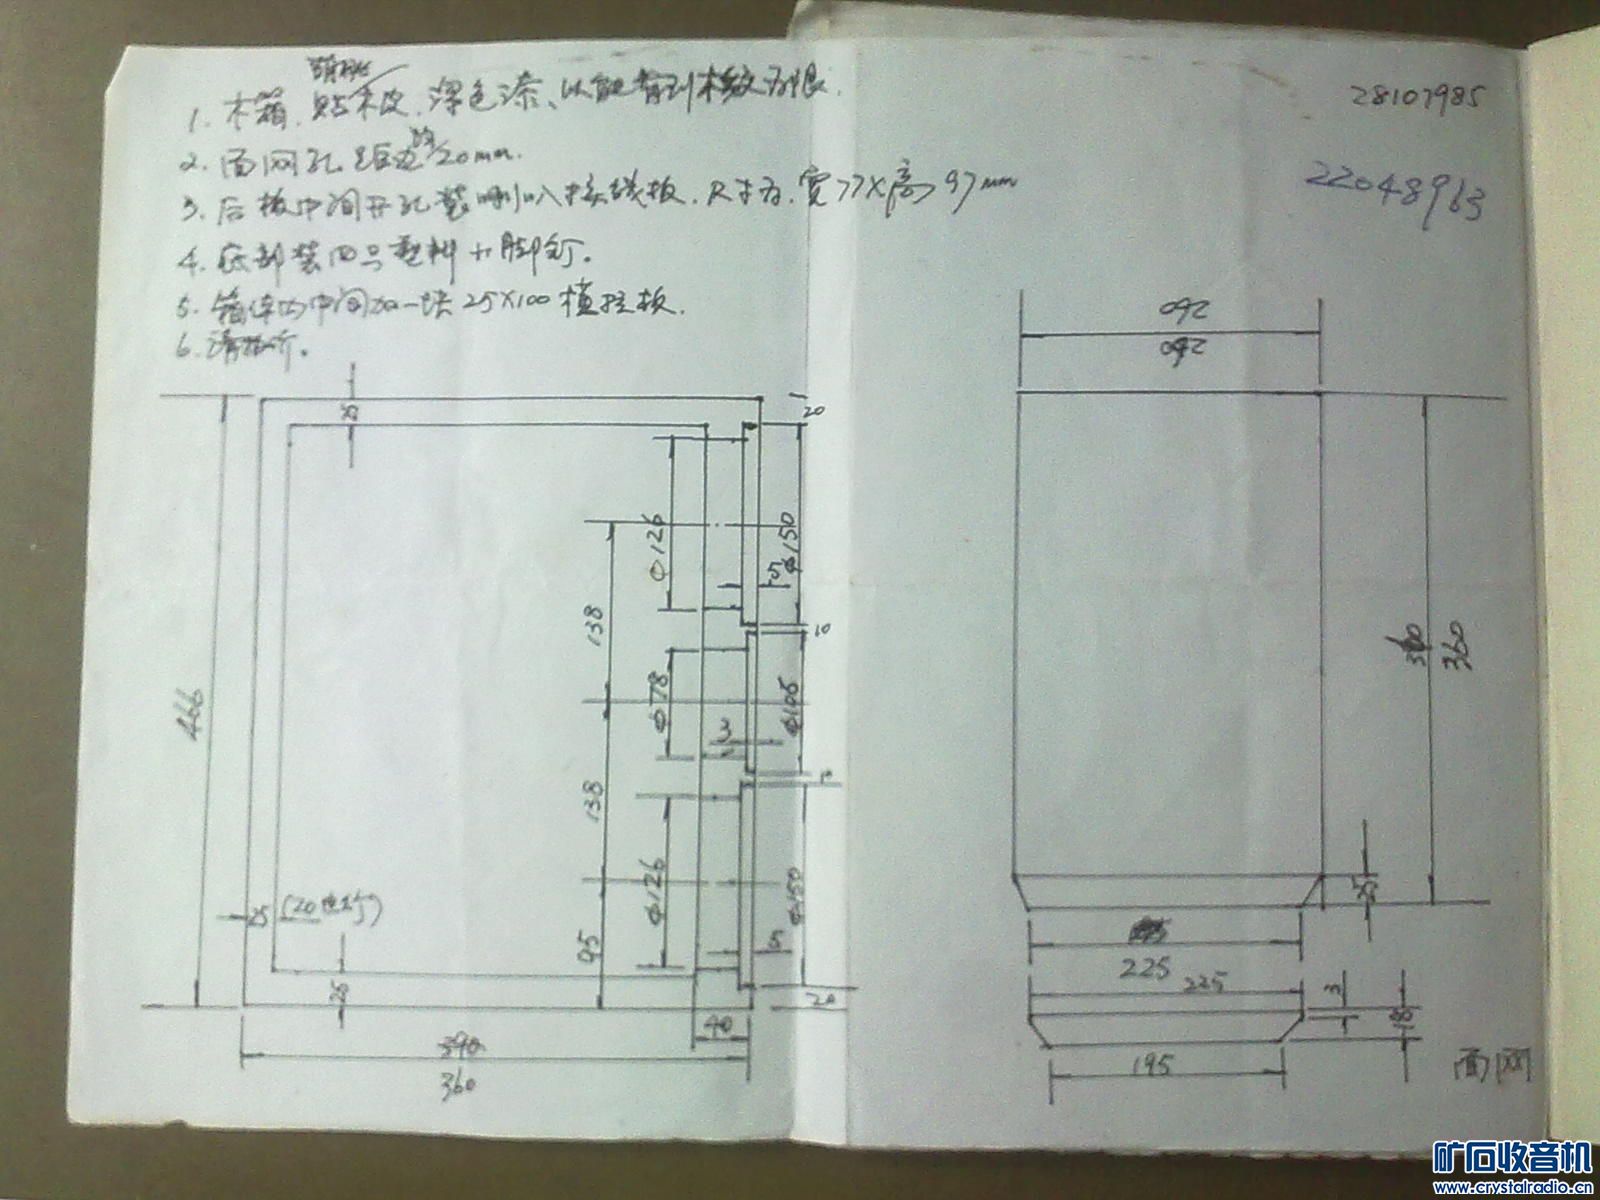 1. 木箱. 贴木皮. 深色漆、以能看到木纹为限.
2. 面网孔距边 20mm.
3. 后板中间开孔装喇叭接线板. 尺寸为. 宽77X高97mm
4. 底部装四只塑料 脚钉.
5. 箱体内中间加一块25X100横拉板.
6. 请报价。
28107985
22048963
466
25
25 (20也行)
25
390
360
40
138
138
95
Φ126
Φ78
Φ126
5
3
5
20
Φ150
10
Φ106
Φ150
20
260
260
360
360
25
225
225
195
3
18
面网
矿石收音机
www.crystalradio.cn